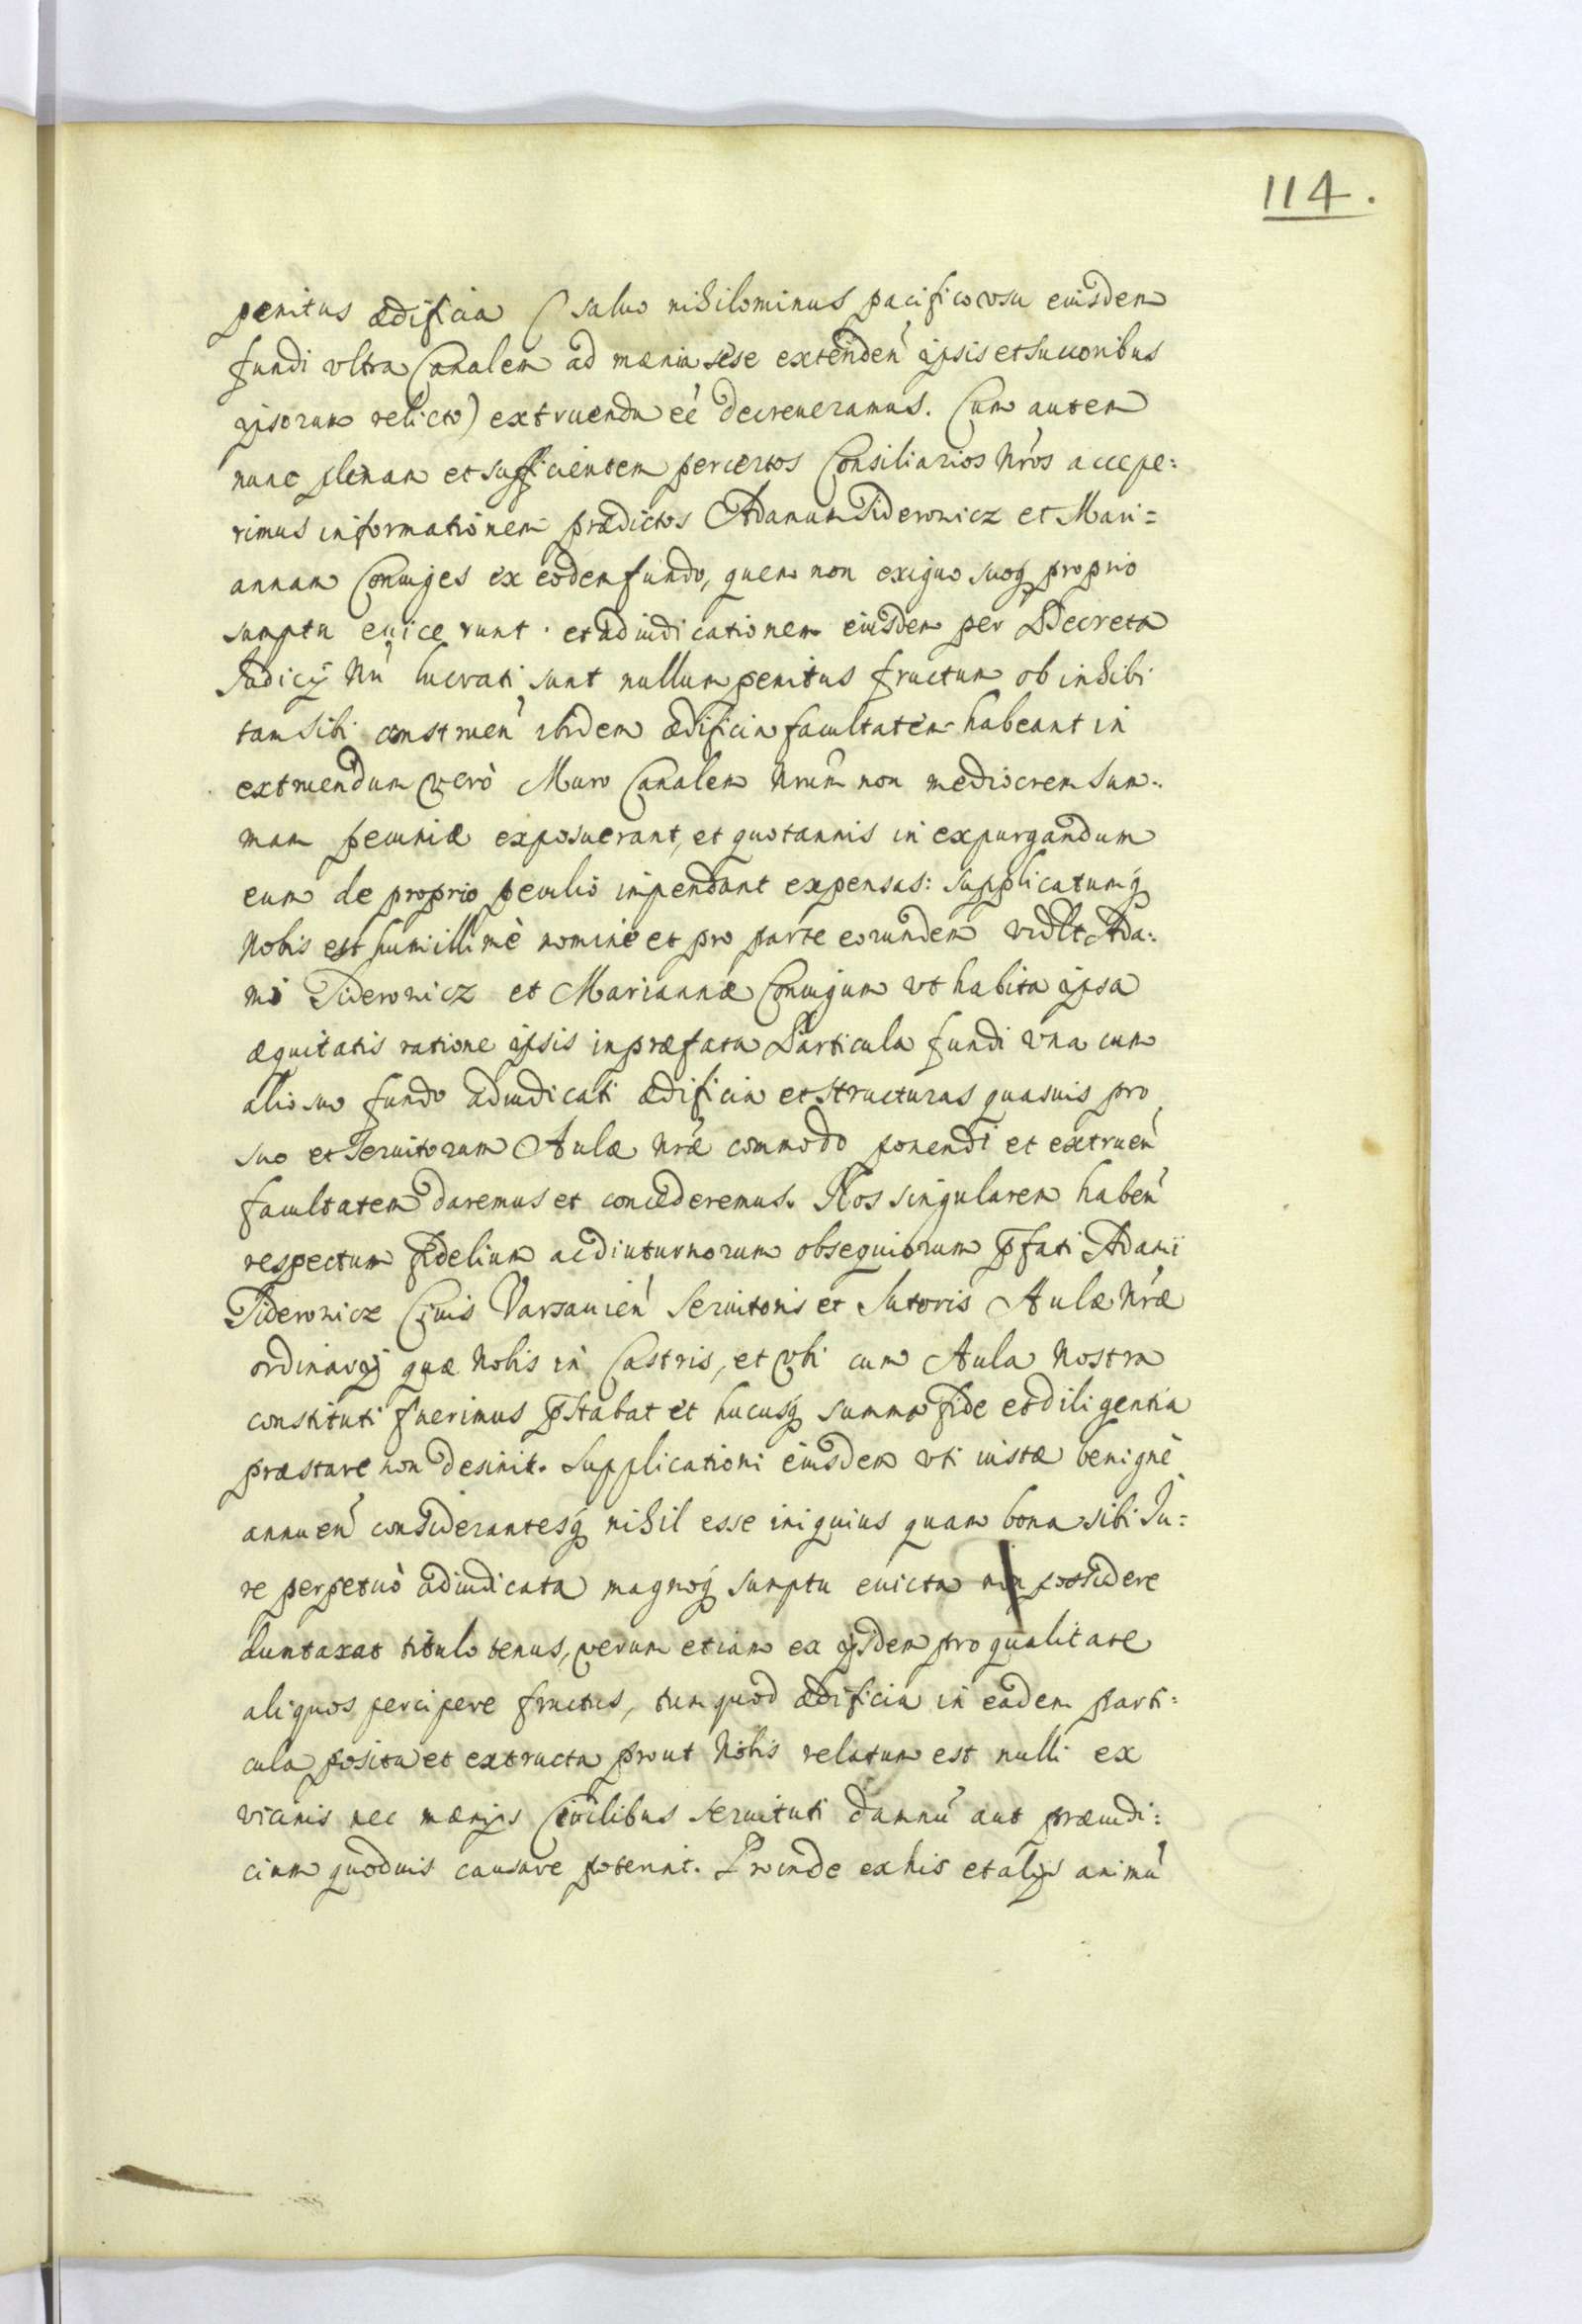 114.
penitus ædificia (salvo nihilominus pacifico vsu eiusdem
fundi vltra Canalem ad mænia sese extendeń ipsis et succoribus
ipsorum relicto) extruenda eé decreveramus. Cum autem
nunc plenam et sufficientem per certos Consiliarios Nŕos accepe:
rimus informationem prædictos Adamum Siderowicz et Mari=
annam Coniuges ex eodem fundo, quem non exiguo suoq́ proprio
sumptu euicerunt et adiudicationem eiusdem per Decreta
Judicij Nŕi lucrati sunt nullum penitus fructum ob inhibi
tam sibi construeń ibidem ædificia facultatem habeant in
extruendum verò Muro Canalem Nrum̃ non mediocrem sum:
mam pecuniæ exposuerant, et quotannis in expurgandum
eum de proprio peculio impendant expensas: supplicatumq́
Nobis est humillimè nomine et pro parte eorundem vidlt Ada:
mi Siderowicz et Mariannæ Coniugum vt habita ipsa
æquitatis ratione ipsis in præfata Particula fundi vna cum
alio suo fundo adiudicati ædificia et structuras quasuis pro
suo et Seruitorum Aulæ Nŕæ commodo ponendi et extrueń
facultatem daremus et concederemus. Nos singularem habeń
respectum fidelium ac diuturnorum obsequiorum p̃fati Adami
Siderowicz Ciuis Varsauień Seruitoris et Sutoris Aulæ Nŕæ
ordinarij quæ Nobis in Castris, et vbi cum Aula Nostra
constituti fuerimus p̃stabat et hucusq́ summa fide et diligentia
præstare non desinit. Supplicationi eiusdem vti iustæ benignè
annueń considerantesq́ nihil esse iniquius quam bona sibi Ju:
re perpetuò adiudicata magnoq́ sumptu euicta non possidere
duntaxat titulo tenus, verum etiam ex ijsdem pro qualitate
aliquos percipere fructus, tum quod ædificia in eadem parti:
cula posita et extructa prout Nobis relatum est nulli ex
vicinis nec mænijs Civilibus seruituti damnú aut præiudi:
cium quoduis causare poterint. Proinde ex his et alijs animú